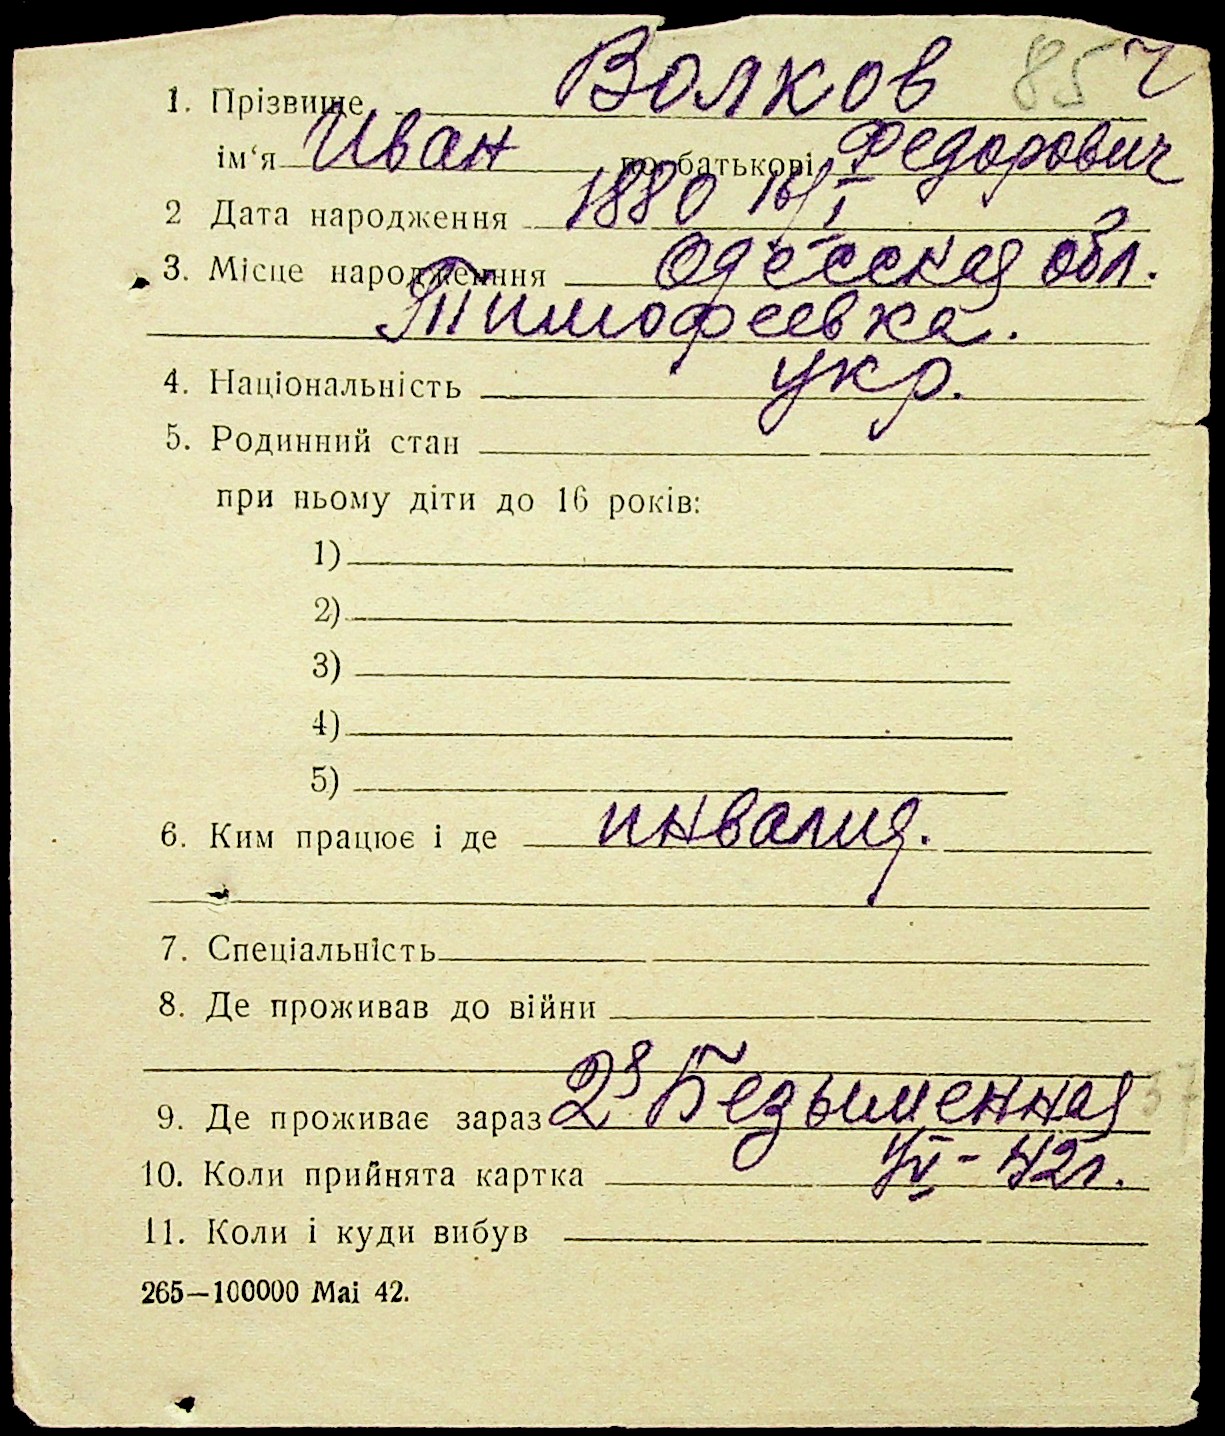 1. Прізвище Волков 85 ч
ім‘я Иван по батькові Федорович
2 Дата народження 1880 16/I
3. Місце народження Одесская обл.
Тимофеевка.
4. Національність укр.
5. Родинний стан
при ньому діти до 16 років:
1)
2)
3)
4)
5)
6. Ким працює і де инвалид.
7. Спеціальність
8. Де проживав до війни
9. Де проживає зараз 2я Безыменная 37
10. Коли прийнята картка -42г.
11. Коли і куди вибув
265—100000 Mai 42.